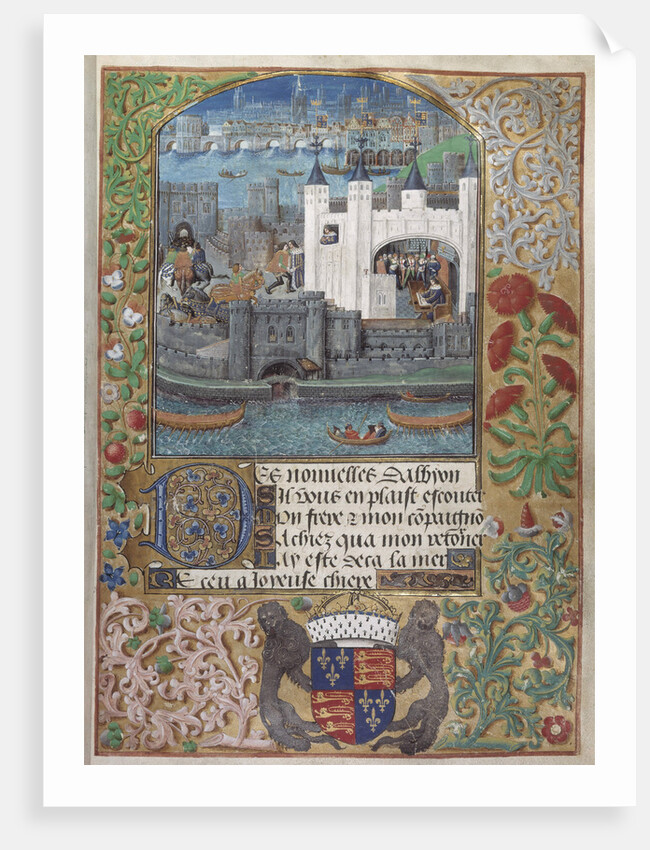 Des nouvelles dalbyon
Sil vous en plaist escouter
Mon frere & mon cõpaignõ
Sachiez qua mon retoner
Jay este deca la mer
Receu a Joyeuse chiere